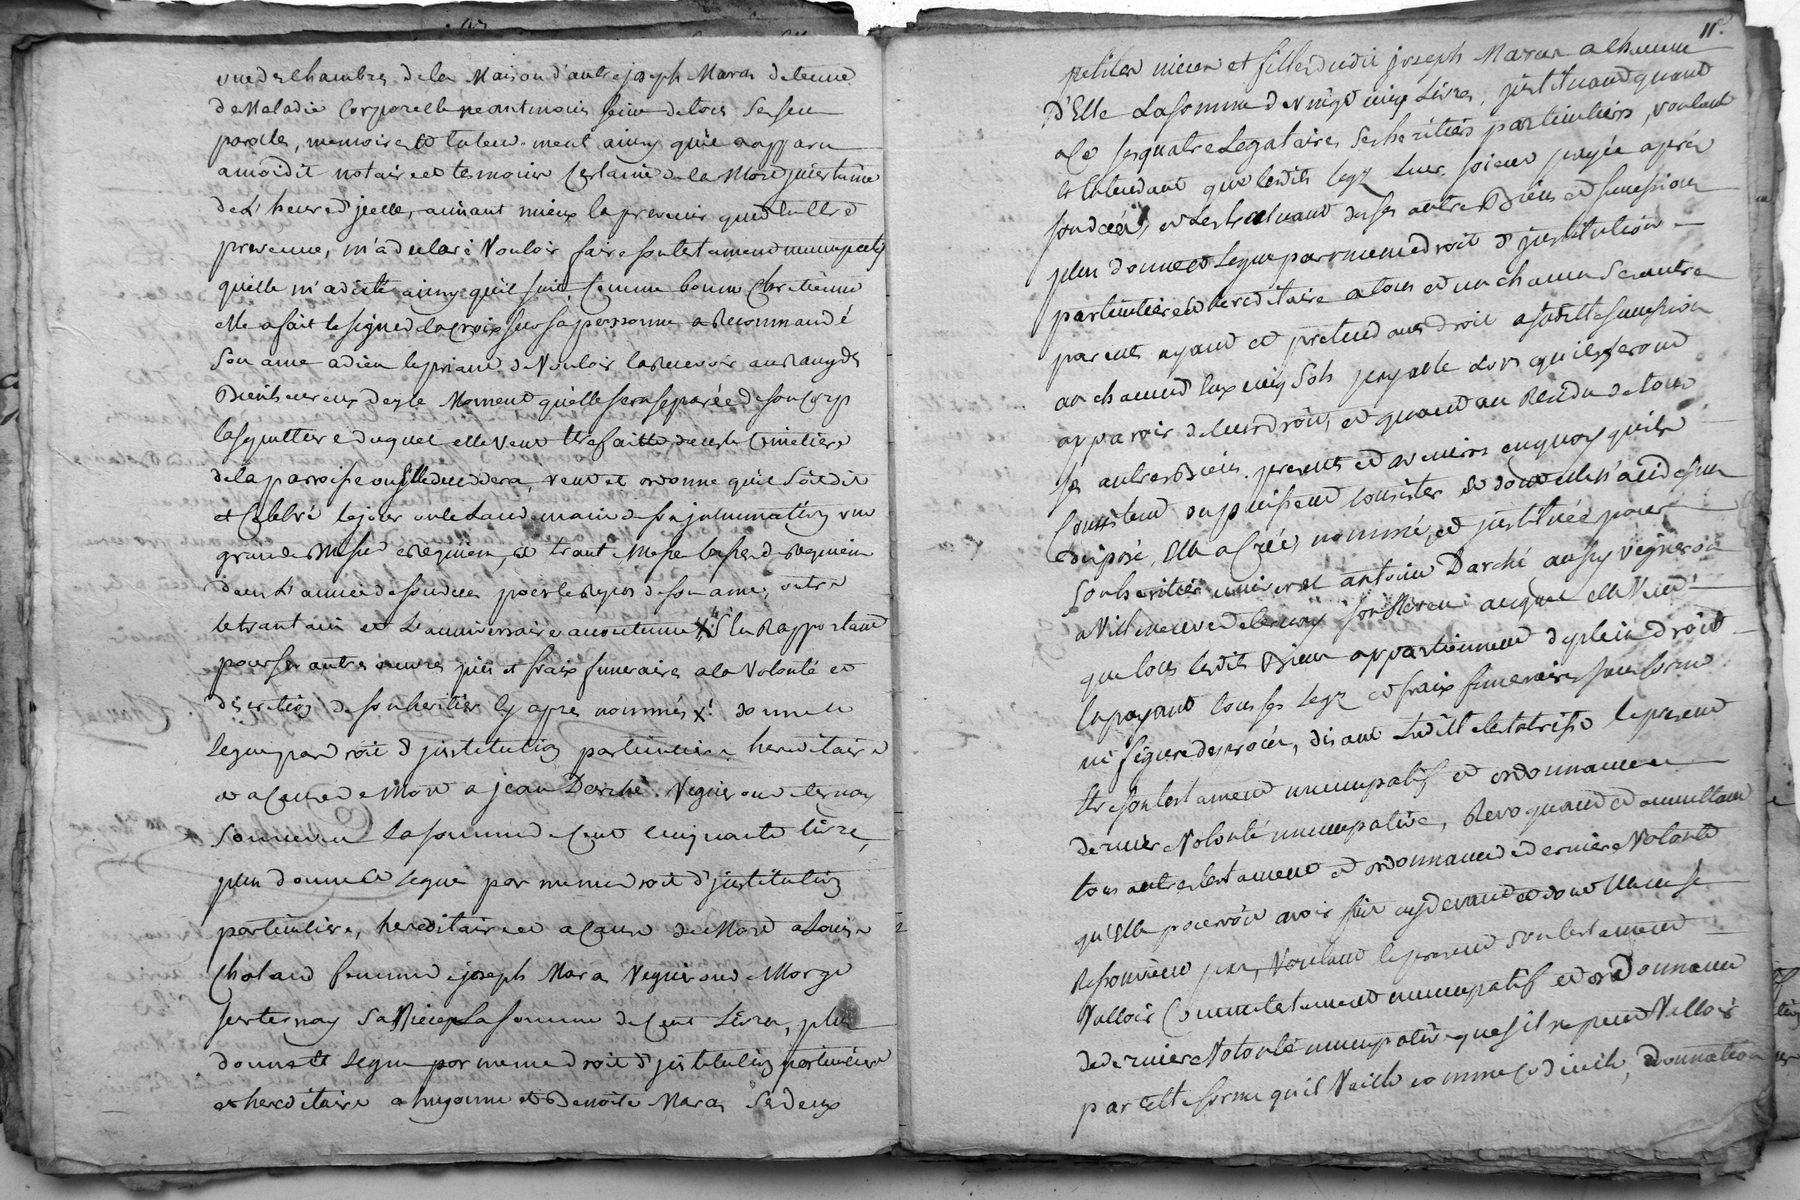 une des chambres de la Maison d'autre joseph Maras detenue
de Maladie Corporelle neantmoins saine de tous Ses sens
parolle, memoire et entendement ainsy quil a apparu
a moidit notaire et temoins Certaine de la Mort, incertaine
de L'heure d'jcelle, aimant mieux la prevenir que d'en Estre
prevenue, m'a declaré Vouloir faire son testament nuncupatif
quelle m'a dicté ainsy quil suit, Comme bonne Chretienne
elle a fait le signe de la croix sur sa personne a Recommandé
Son ame a dieu le priant de Vouloir la Recevoir au Rang des
Bienheureux des le Moment quelle sera separée de son Corp
la sepulture duquel elle veut Etre faitte dans le Cimetiere
de la paroisse ou Elle decedera, veut et ordonne quil Soit dit
et Celebré le jour ou le Landemain de son jnhumation une
grande Messe de Requiem, et trante Messe basse de Requiem
dans L'année de son deces pour le Repos de son ame, outre
le trantain et L'anniversaire accoutumé X S'En Rapportant
pour ses autres œuvres pies et fraix funeraires a la Volonté et
discretion de son heritier Cy apres nommé X donne et
Legue par droit d'jnstitution particuliere hereditaire
et a Cause de Mort a jean Darché Vigneron de ternay
Son neveu La somme de Cent cinquante Livre,
plus donne et Legue par meme droit d'jnstitution
particuliere, hereditaire et a Cause de Mort a Louise
Chotard femme de joseph Mara Vigneron de Morge
sur ternay Sa Niece La somme de Cent Livres, plus
donne et Legue par meme droit d'jnstitution particuliere
et hereditaire a hugonne et Benoite Maras Ses deux
11e
petites nieces et filles dudit joseph Maras a chacune
d'Elle La somme de vingt cinq Livres, jnstituant quant
a Ce ses quatre Legataires Ses heritiers particuliers, voulant
et Entendant que lesdits legs Leur soient payés apres
son decés, et Les Excluant de ses autres Biens et succession
plus donne et Legue par meme droit d'jnstitution
particuliere et hereditaire a tous et un chacun Ses autres
parents ayant et pretendants droit a sa ditte succession
a un chacun d'eux cinq Sols payable Lors quils feront
apparoir de leurs droits, et quant au Residu de tous
ses autres Biens presents et avenirs en quoy quils
Consistent ou puissent consister et dont elle n'a cy dessus
disposé, Elle a créés, nommé, et jnstitué pour
Son heritier universel antoine Darché aussy vigneron
a Villeneuve de ternay Son Neveu auquel elle Veut
que tous lesdits Biens appartiennent de plein droit
En payant tous ses Legs et fraix funeraires sans forme
ni figure de procés, disant Laditte testatrisse le present
Etre son testament nuncupatif et ordonnance de
derniere Volonté nuncupative, Revoquant et annullant
tous autres testament et ordonnance de derniere Volonté
qu'Elle pourroit avoir fait cy devant et dont Elle ne se
Ressouvient pas, Voulant le present son testament
Valloir Comme testament nuncupatif et ordonnance
de derniere Volonté nuncupative, que s'il ne peut Valloir
par cette forme qu'il Vaille comme Codicile, Donnation